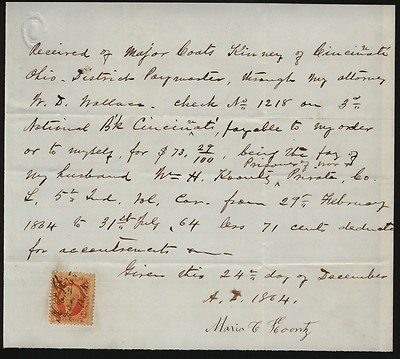 Received of Major Coats Kinney of Cincinnati
Ohio - District Paymaster, through my attorney
W. D. Wallace. check No 1218 on 3rd
National B'k Cincinnati, payable to my order
or to myself, for $73.29/100, being the pay of
Prisoner of war
my husband Wm H. Koontz Private, Co.
L, 5th Ind. Vol. Cav. from 27th February
1864 to 31st July, 64 less 71 cents deducted
for accoutrements
Given this 24th day of December
A. D. 1864.
Maria C Koontz